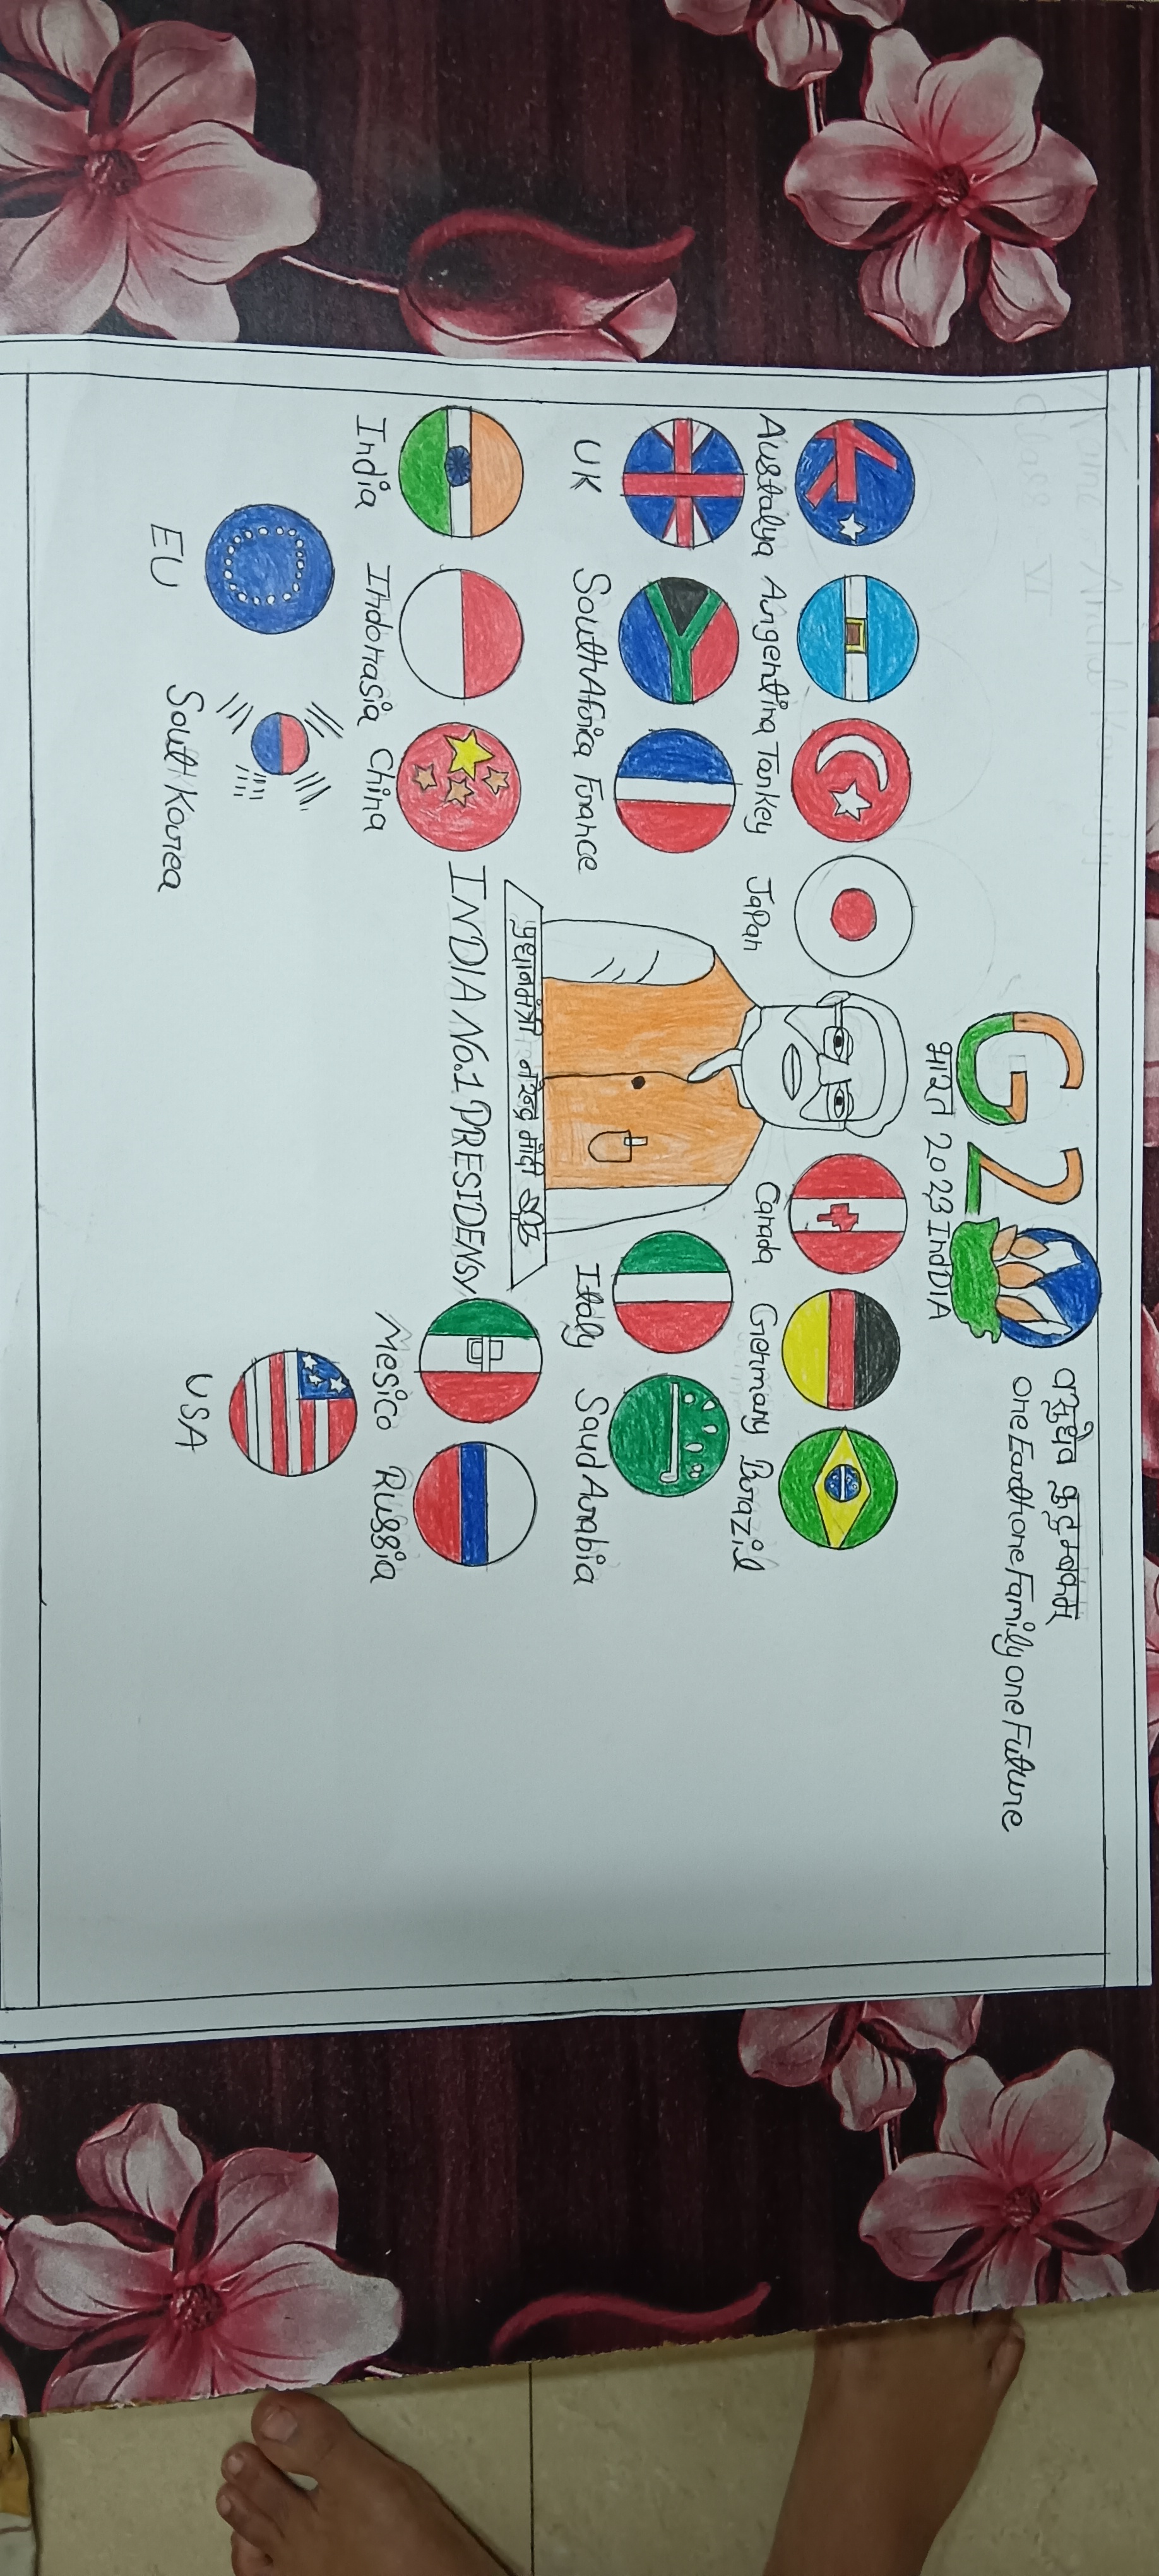 G20
भारत 2023 IndDIA
वसुधैव कुटुम्बकम
one Earth one Family one Future
Austalya Argentina Tarkey Japan
Canada Gehmany Brazil
UK South Africa France
Italy Saud Arabia
प्रधानमंत्री नरेन्द्र मोदी
INDIA No.1 PRESIDENSY
India Indonasia China
Mesico Russia
EU South Korea
USA